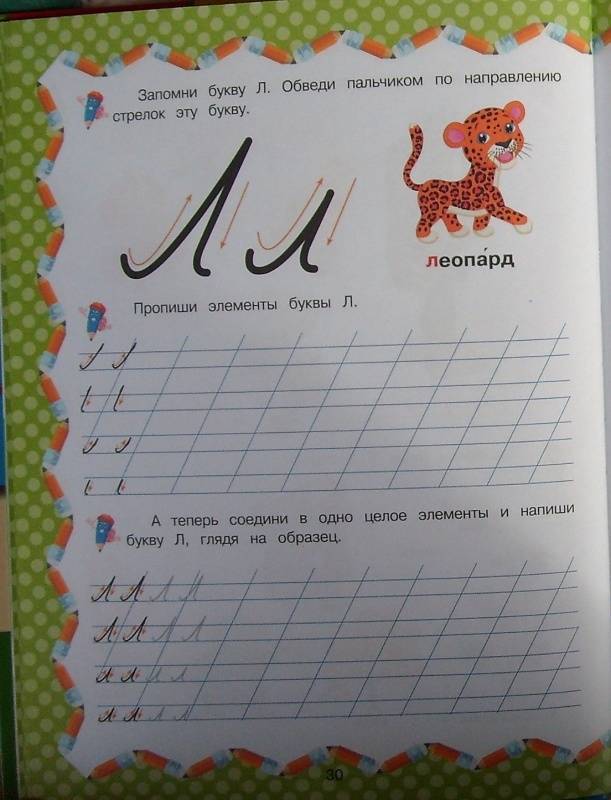 Запомни букву Л. Обведи пальчиком по направлению
стрелок эту букву.
Л л
леопа́рд
Пропиши элементы буквы Л.
А теперь соедини в одно целое элементы и напиши
букву Л, глядя на образец.
Л Л Л Л
Л Л Л Л
л л л л
л л л л
30